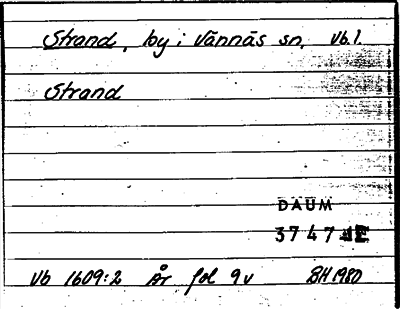 Strand, by i Vännäs sn. Vb.l.
Strand
DAUM
3747
Vb 1609:2 År fol 9v BH 1980